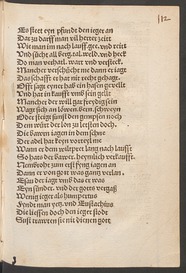 112
Es steet eyn pfründt den ieger an
Das zu darff man vil herter zeitt
Wie man im nach lauff ger vnd reitt
Vnd sůcht all berg tal weld vnd heck
Do man verhatt wart vnd versteck
Mancher verschücht me dann er iagt
Das schafft er hat nit recht gehagt
Offt sagt eyner hab ein hasen gefellt
Vnd hat in kaufft vmb sein gelt
Mancher der will gar freydig sein
Wagt sich an löwen beren schweyn
Oder steigt sunst den gempsen noch
Dem würt der lon zu lesten doch
Die bawrn iagen in dem schne
Der adel hat keyn vorteyl me
Wann er dem wiltpret lang nach laufft
So hats der bawr heymlich verkaufft
Nembrodt zum erst fyng iagen an
Dann er von got was gantz verlan
Esau der iagt vmb das er was
Eyn sünder vnd der gotts vergaß
Wenig ieger als Humpertus
Fyndt man yetz vnd Eustachius
Die liessen doch den ieger stodt
Sust trauten sie nit dienen gott